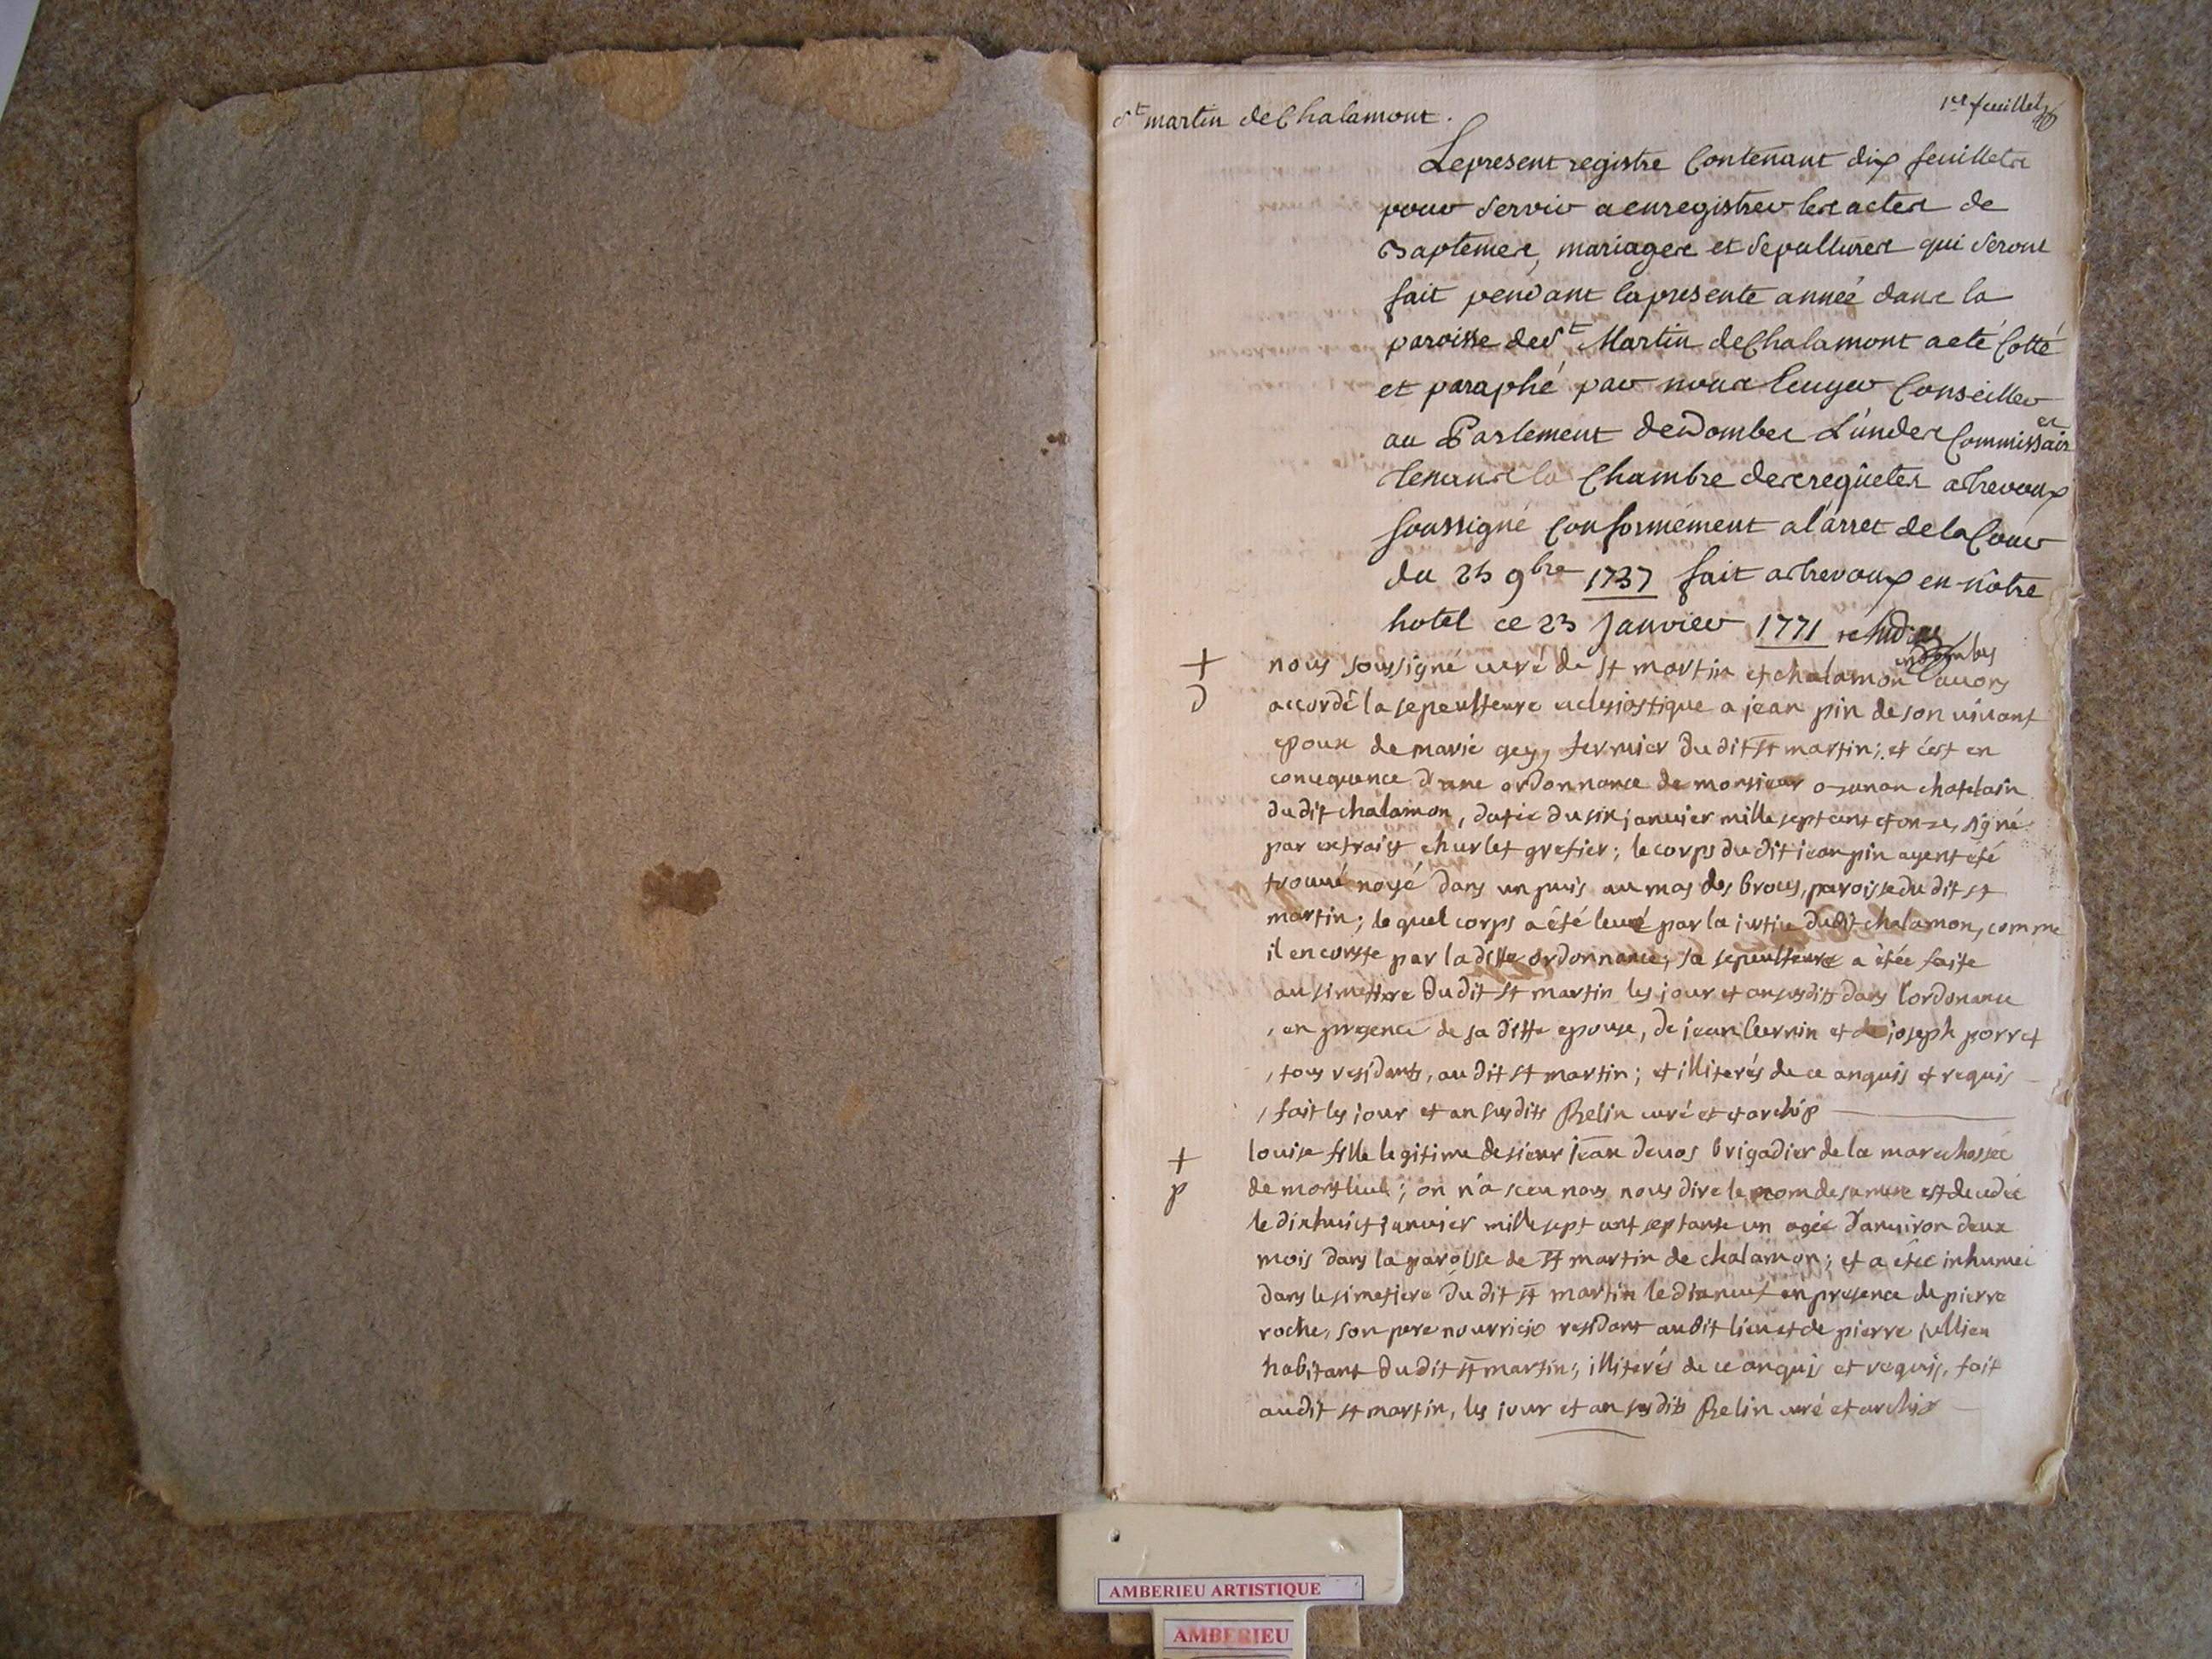 St martin de Chalamont.
1er feuillet
Le present registre Contenant dix feuillets
pour servir a enregistrer les actes de
Baptemes, mariages et sepultures qui seront
fait pendant la presente année dans la
paroisse de St Martin de Chalamont a eté Cotté
et paraphé par nous Ecuyer Conseiller
au Parlement de Dombes L'un des Commissaires
tenans la Chambre des requêtes a Trevoux
soussigné Conformément a l'arret de la Cour
du 25 9bre 1737 fait a Trevoux en nôtre
hotel ce 23 Janvier 1771
en dombes
+ nous soussigné curé de st martin et chalamon avons
accordé la sepeulteure eclesiastique a jean pin de son vivant
epoux de marie gey, fermier du dit st martin; et c'est en
concequence d'une ordonnance de monsieur ozanan chatelain
du dit chalamon, datée du six janvier mille sept cent et onze, signé
par extraict churlet grefier; le corps du dit jean pin ayent eté
trouvé noyé dans un puis au mas des brous, paroisse du dit st
martin; le quel corps a été levé par la justice dudit chalamon, comme
il en conste par la ditte ordonnance; sa sepeulteure a étée faite
au simettere du dit st martin les jour et an susdits dans l'ordonance
, en presence de sa ditte epouse, de jean et de joseph porret
, tous residents, au dit st martin; et illiterés de ce anquis et requis
, fait les jour et an susdits Belin curé et et archip
+ louise fille legitime de sieur jean devos brigadier de la marechossée
p de montluel; on n'a sceu nous nous dire le nom de sa mere est decedée
le dixhuict janvier mille sept cent septante un agée d'anviron deux
mois dans la paroisse de st martin de chalamon; et a étée inhumée
dans le simetiere du dit st martin le dixneuf en presence de pierre
roche, son pere nourricie residant au dit lieu et de pierre jullien
habitant du dit st martin; illiterés de ce anquis et requis, fait
au dit st martin, les jour et an susdits Belin curé et archip
AMBERIEU ARTISTIQUE
AMBERIEU